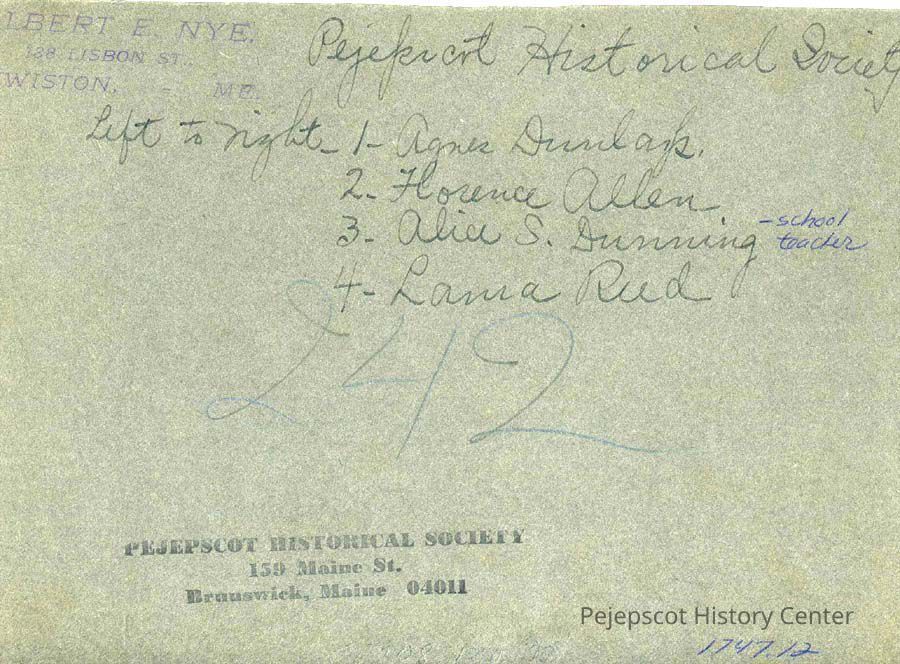 LBERT E. NYE.
138 LISBON ST.
EWISTON, - ME.
Pejepscot Historical Society
Left to right - 1 - Agnes Dunlap.
2 - Florence Allen
3 - Alice S. Dunning - school teacher
4 - Laura Reed
242
PEJEPSCOT HISTORICAL SOCIETY
159 Maine St.
Brunswick, Maine 04011
Pejepscot History Center
1747.12